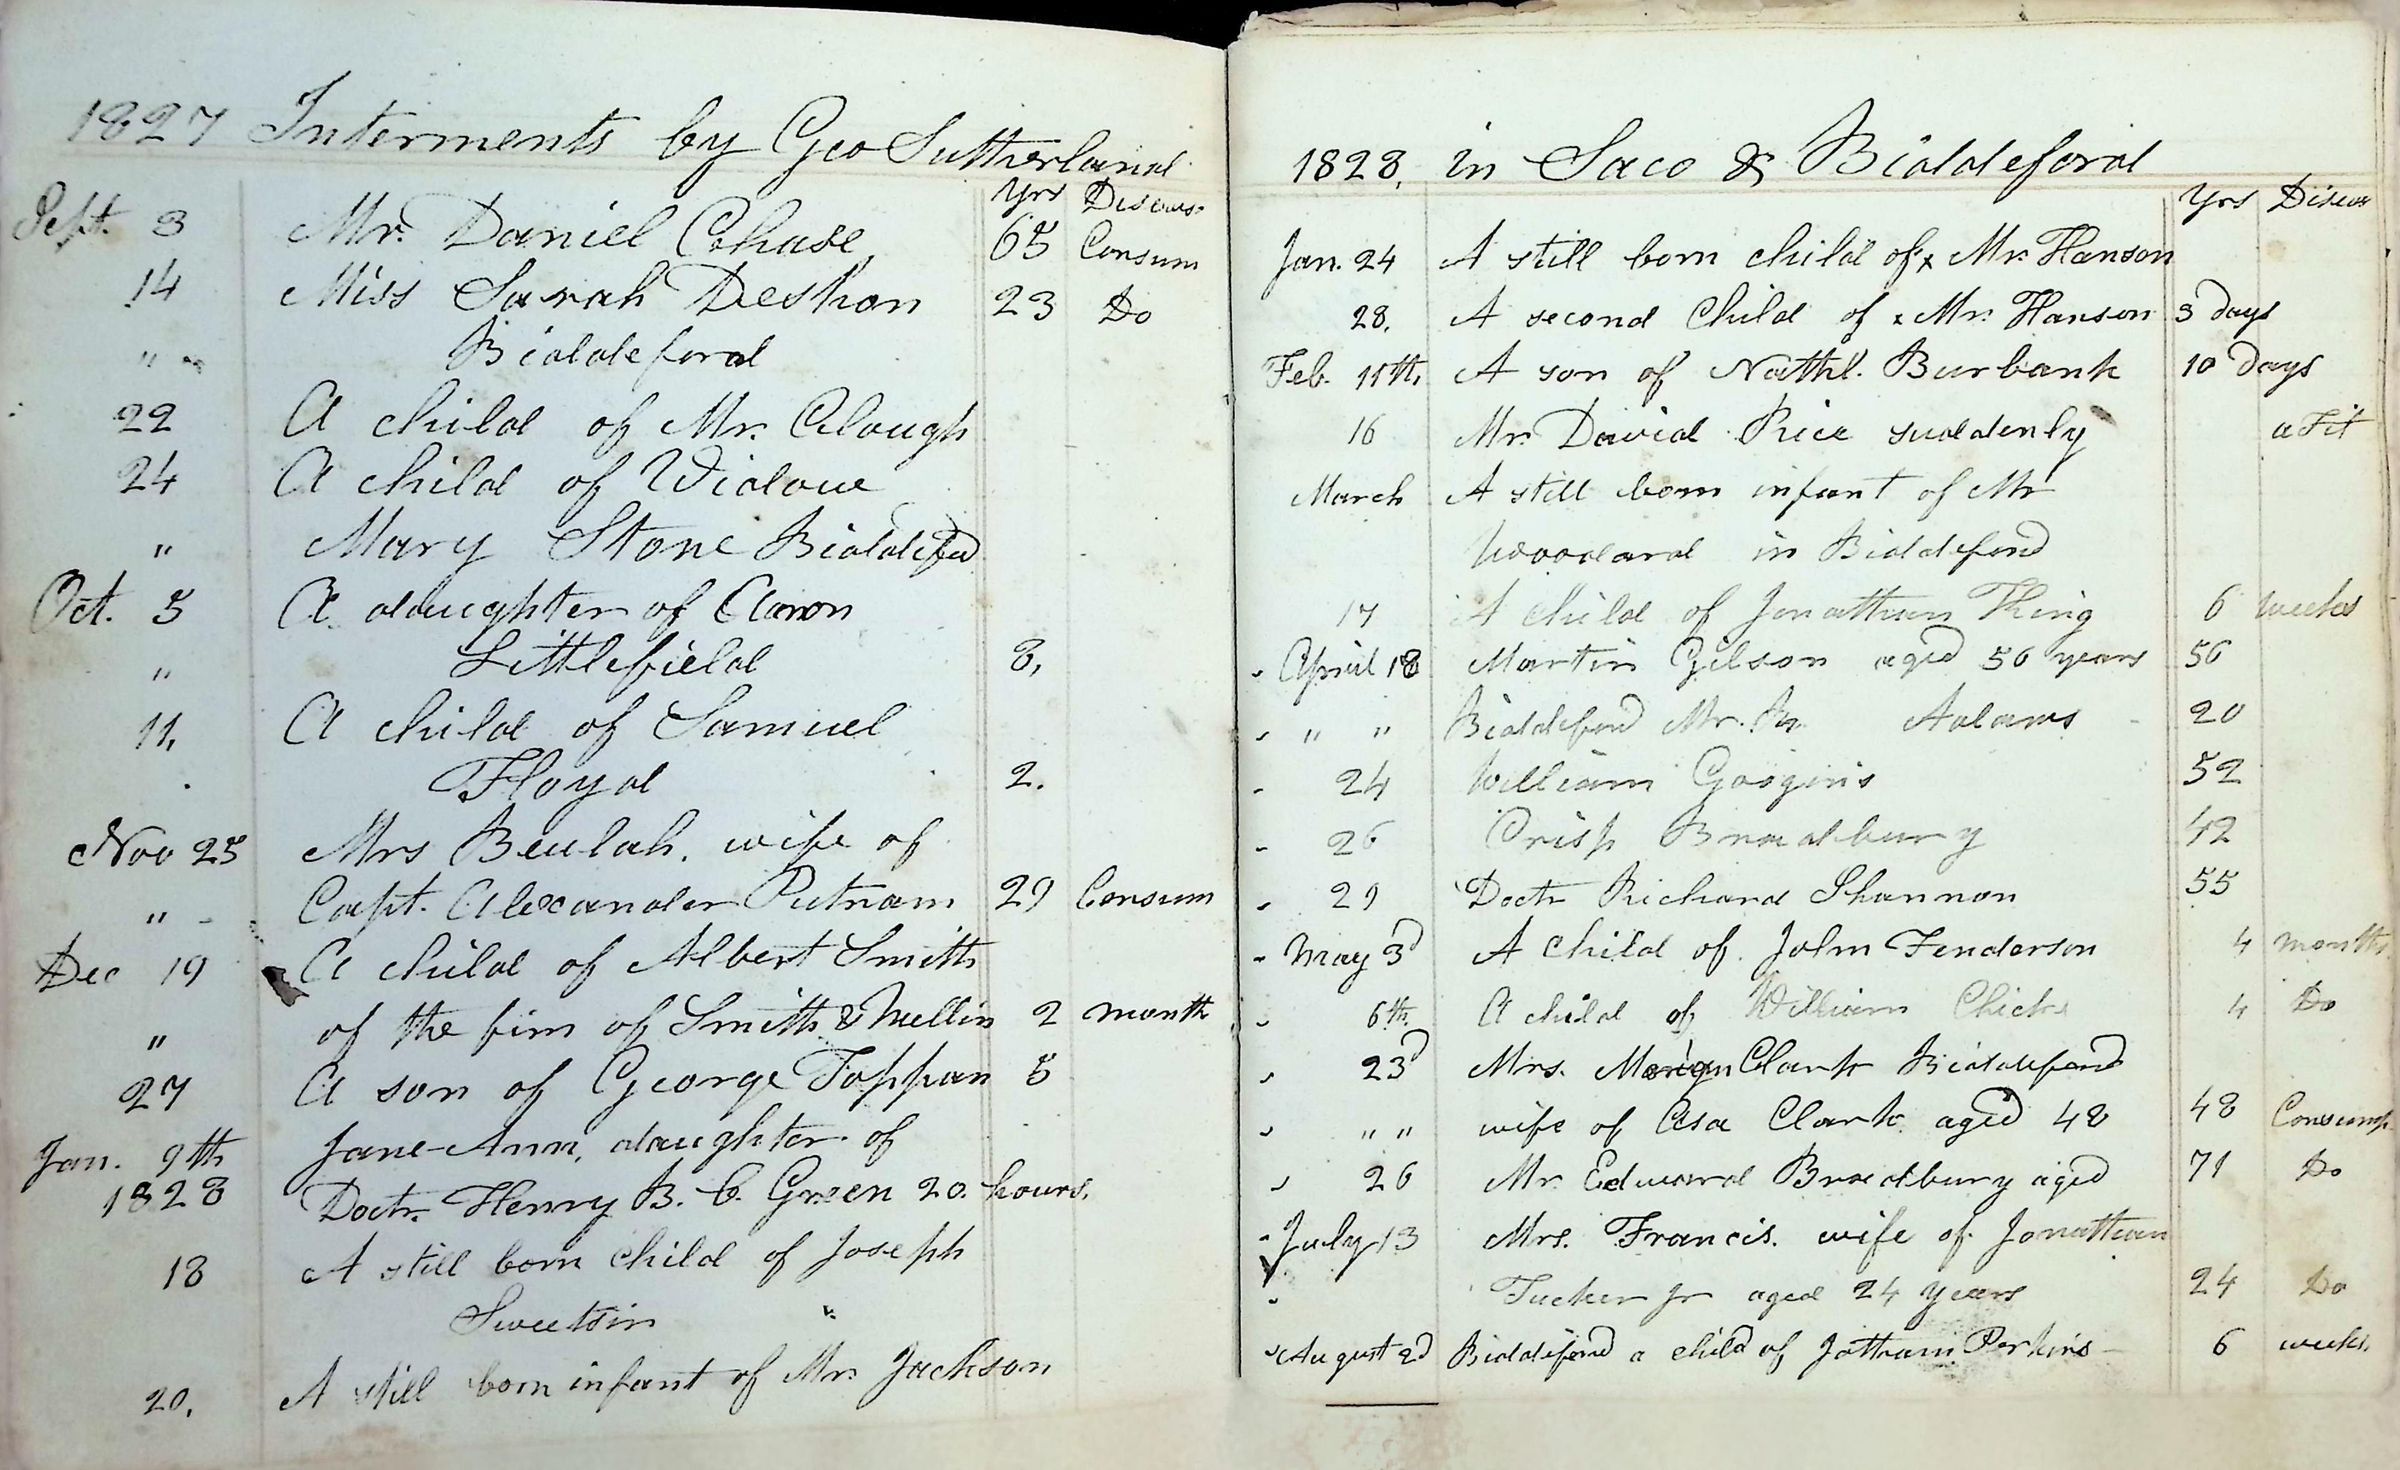 1827 Interments by Geo Sutherland
Yrs Diseas.
Sept. 3 Mr. Daniel Chase 65 Consum
14 Miss Sarah Deshon 23 Do
" " Biddeford
22 A child of Mr. Clough
24 A child of Widow
" Mary Stone Biddeford
Oct. 5 A daughter of Aaron
" Littlefield 3,
11, A child of Samuel
Floyd 2.
Nov 25 Mrs Beulah, wife of
" Capt. Alexander Putnam 29 Consum
Dec 19 A child of Albert Smith
" of the firm of Smith & Mellin 2 month
27 A son of George Toppan 5
Jan. 9th Jane-Ann, daughter of
1828 Doctr. Henry B. C. Green 20. hours.
18 A still born child of Joseph
Sweetsir "
20. A still born infant of Mr. Jackson
1828. in Saco & Biddeford
Yrs Diseas
Jan. 24 A still born child of x Mr. Hanson
28. A second Child of x Mr. Hanson 3 days
Feb. 11th. A son of Nathl. Burbank 10 days
16 Mr. David Rice suddenly a Fit
March A still born infant of Mr
Woodard in Biddeford
17 A child of Jonathan King 6 weeks
April 18 Martin Gilson aged 56 years 56
" " Biddeford Mr. Adams 20
24 William Googins 52
26 Crisp Bradbury 42
29 Doctr Richard Shannon 55
May 3d A child of John Fenderson 4 months
6th. A child of William Chick 4 Do
23d Mrs. Clark Biddeford
" " wife of Asa Clark aged 48 48 Consump.
26 Mr. Edward Bradbury aged 71 Do
July 13 Mrs. Francis. wife of Jonathan
Tucker Jr aged 24 years 24 Do
August 2d Biddeford a child of Jotham Perkins 6 weeks.